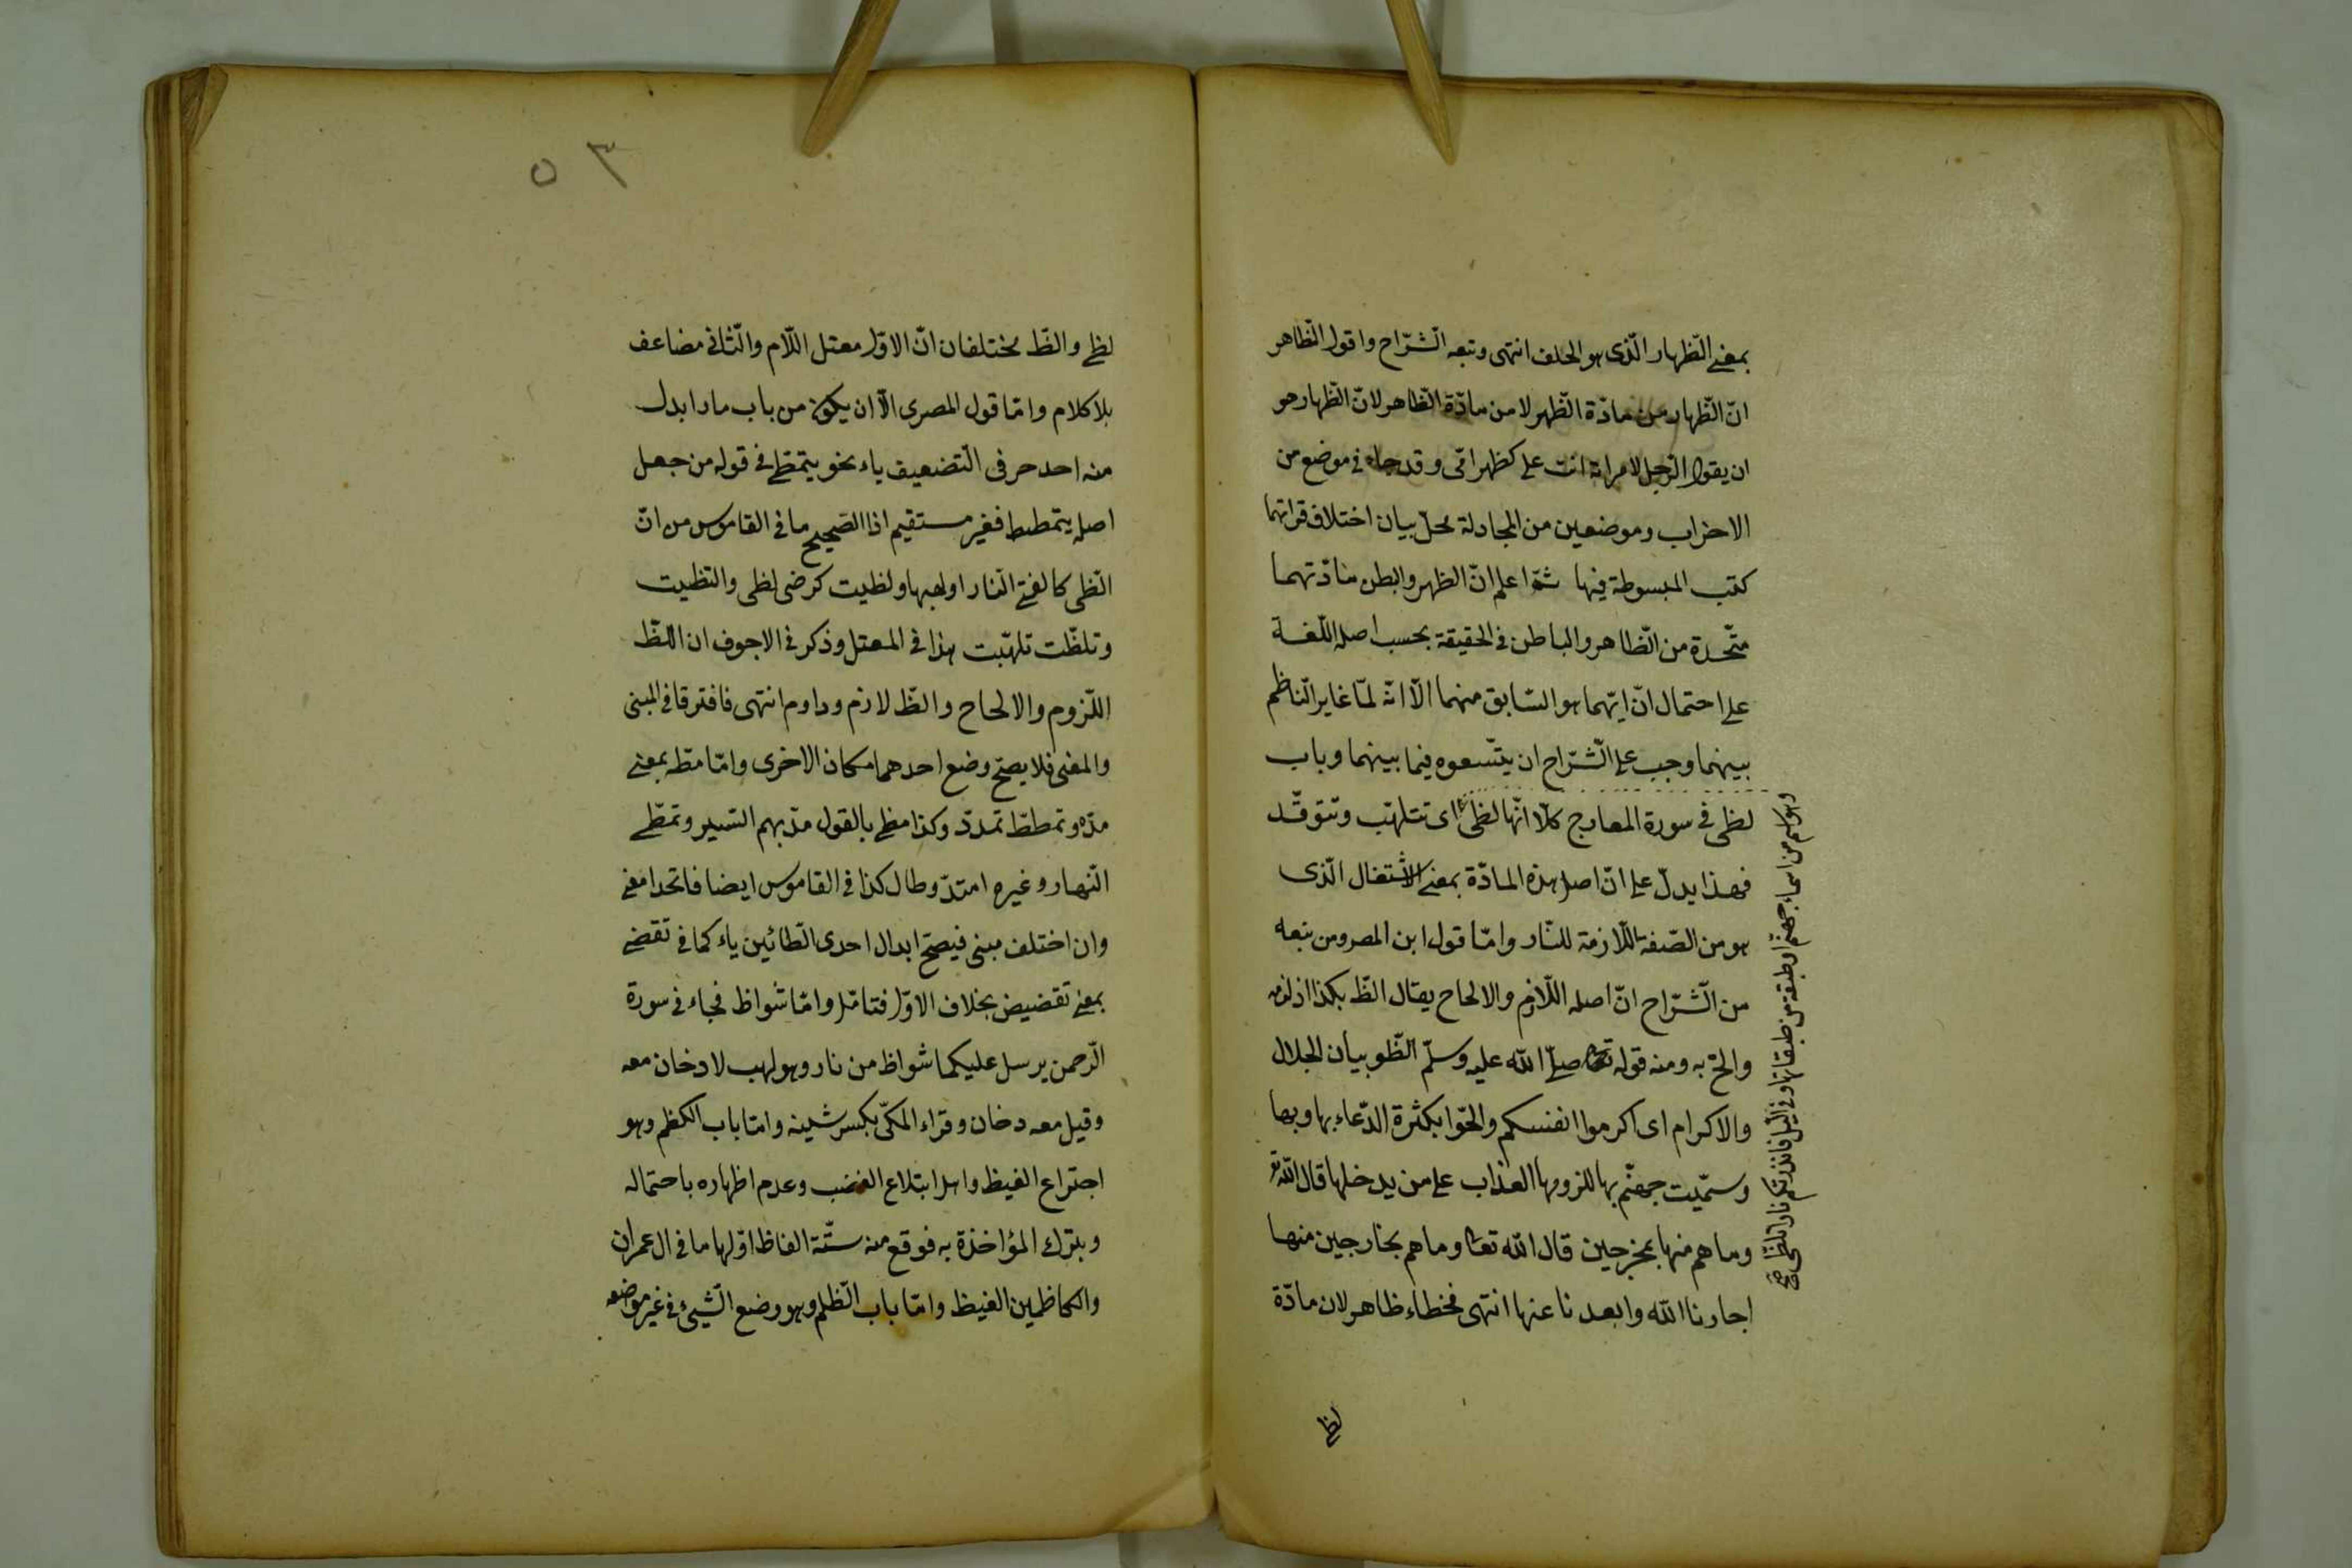 بمعنى الظّهار الّذى هو الحلف انتهى وتبعه الشّرّاح واقول الظّاهر
انّ الظّهار من مادّة الظّهر لا من مادّة الظّاهر لانّ الظّهار هو
ان يقول الرّجل لامراته انت علىّ كظهر امّى وقد جاء فى موضع من
الاحزاب وموضعين من المجادلة محلّ بيان اختلاف قراتهما
كتب المبسوطة فيها ثمّ اعلم انّ الظهر والبطن مادّتهما
متّحدة من الظّاهر والباطن فى الحقيقة بحسب اصل اللّغة
على احتمال انّ ايّهما هو السّابق منهما الّا انّه لمّا غاير النّاظم
بينهما وجب على الشّرّاح ان يتّسعوه فيما بينهما وباب
لظى فى سورة المعارج كلّا انّها لظى اى تتلهّب وتتوقّد
فهذا يدلّ على انّ اصل هذه المادّة بمعنى الاشتغال الّذى
هو من الصّفة اللّازمة للنّار وامّا قول ابن المصر ومن تبعه
من الشّرّاح انّ اصله اللّازم والالحاح يقال الظّ بكذا اذ لزمه
والحّ به ومنه قوله صلّى اللّه عليه وسلّم الظّوا بيا ذا الجلال
والاكرام اى اكرموا انفسكم والحّوا بكثرة الدّعاء بها وبها
وسمّيت جهنّم بها للزومها العذاب على من يدخلها قال اللّه تع
وما هم منها بمخرجين قال اللّه تعا وما هم بخارجين منها
اجارنا اللّه وابعدنا عنها انتهى فخطاء ظاهر لان مادّة
وهو اسم من اسماء جهنّم او طبقة من طبقاتها وفى اللّيل فانذرتكم نارا تلظّى صح
لظى
٥٣
لظى والظّ مختلفان انّ الاوّل معتل اللّام والثّانى مضاعف
بلا كلام وامّا قول المصرى الّا ان يكون من باب ما ابدل
منه احد حرفى التّضعيف ياء نحو يتمطّى فى قوله من جعل
اصله يتمطط فغير مستقيم اذا الصّحيح ما فى القاموس من انّ
الّظى كالفتى النّار او لهبها ولظيت كرضى لظى والتظيت
وتلظّت تلهّبت هذا فى المعتل وذكر فى الاجوف ان اللظّ
اللّزوم والالحاح والظّ لازم وداوم انتهى فافترقا فى المبنى
والمعنى فلا يصحّ وضع احدهما مكان الاخرى وامّا مطّه بمعنى
مدّه وتمطط تمدّد وكذا مطى بالقول مدّ بهم السّير وتمطّى
النّهار وغيره امتدّ وطال كذا فى القاموس ايضا فاتحدا معنى
وان اختلف مبنى فيصحّ ابدال احدى الطّائين ياء كما فى تقضى
بمعنى تقضيض بخلاف الاوّل فتامّل وامّا شواظ فجاء فى سورة
الرّحمن يرسل عليكما شواظ من نار وهو لهب لا دخان معه
وقيل معه دخان وقراء المكّى بكسر شينه وامّا باب الكظم وهو
اجتراع الغيظ واهل ابتلاع الغضب وعدم اظهاره باحتماله
وبترك المؤاخذة به فوقع منه ستّة الفاظ اوّلها ما فى ال عمران
والكاظمين الغيظ وامّا باب الظّلم وهو وضع الشّيئ فى غير موضعه